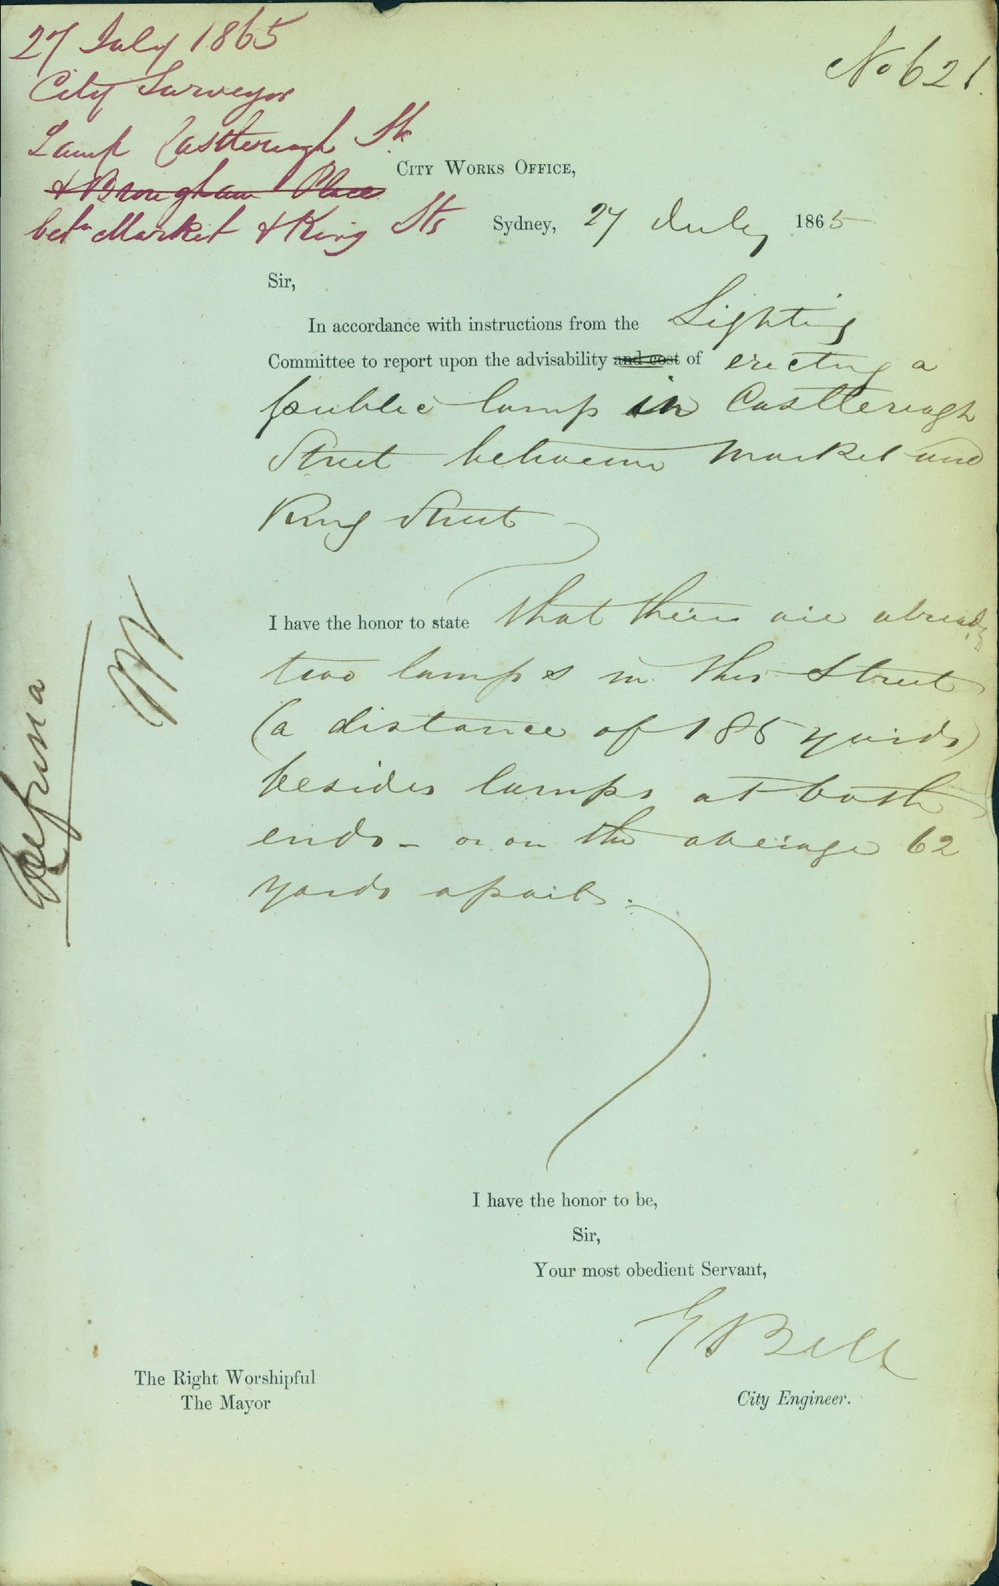 27 July 1865
City Surveyor
Lamp Castlereagh St.
& Brougham Place
betn Market & King Sts
No 621.
City Works Office,
Sydney, 27 July 1865
Sir,
In accordance with instructions from the Lighting
Committee to report upon the advisability and cost of erecting a
public lamp in Castlereagh
Street between Market and
King Street
I have the honor to state that there are already
two lamps in this Street
(a distance of 185 yards)
besides lamps at both
ends – or on the average 62
yards apart.
Refused
I have the honor to be,
Sir,
Your most obedient Servant,
E Bell
City Engineer.
The Right Worshipful
The Mayor